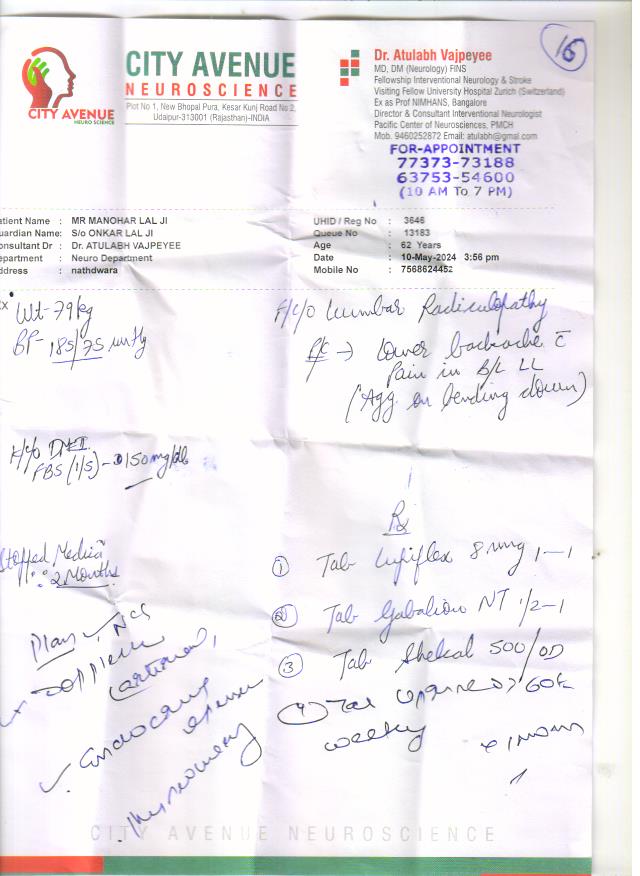 16
CITY AVENUE
NEURO SCIENCE
CITY AVENUE
NEUROSCIENCE
Plot No 1, New Bhopal Pura, Kesar Kunj Road No 2,
Udaipur-313001 (Rajasthan)-INDIA
Dr. Atulabh Vajpeyee
MD, DM (Neurology) FINS
Fellowship Interventional Neurology & Stroke
Visiting Fellow University Hospital Zurich (Switzerland)
Ex as Prof NIMHANS, Bangalore
Director & Consultant Interventional Neurologist
Pacific Center of Neurosciences, PMCH
Mob. 9460252872 Email: atulabh@gmail.com
FOR-APPOINTMENT
77373-73188
63753-54600
(10 AM To 7 PM)
atient Name : MR MANOHAR LAL JI
uardian Name: S/o ONKAR LAL JI
onsultant Dr : Dr. ATULABH VAJPEYEE
epartment : Neuro Department
ddress : nathdwara
UHID / Reg No : 3646
Queue No : 13183
Age : 62 Years
Date : 10-May-2024 3:56 pm
Mobile No : 7568624452
Wt-79kg
BP- 185/75 mmHg
F/C/O Lumbar Radiculopathy
Lower backache c̄
Pain in B/L LL
(Agg. on bending down)
K/C/O DM-II
FBS (1/5) - 150 mg/dl
2 Months
Plan NCS
Rx
① Tab Lupiflex 8 mg 1-1
② Tab Gabalion NT 1/2-1
③ Tab Shelcal 500/OD
④ 60k
weekly